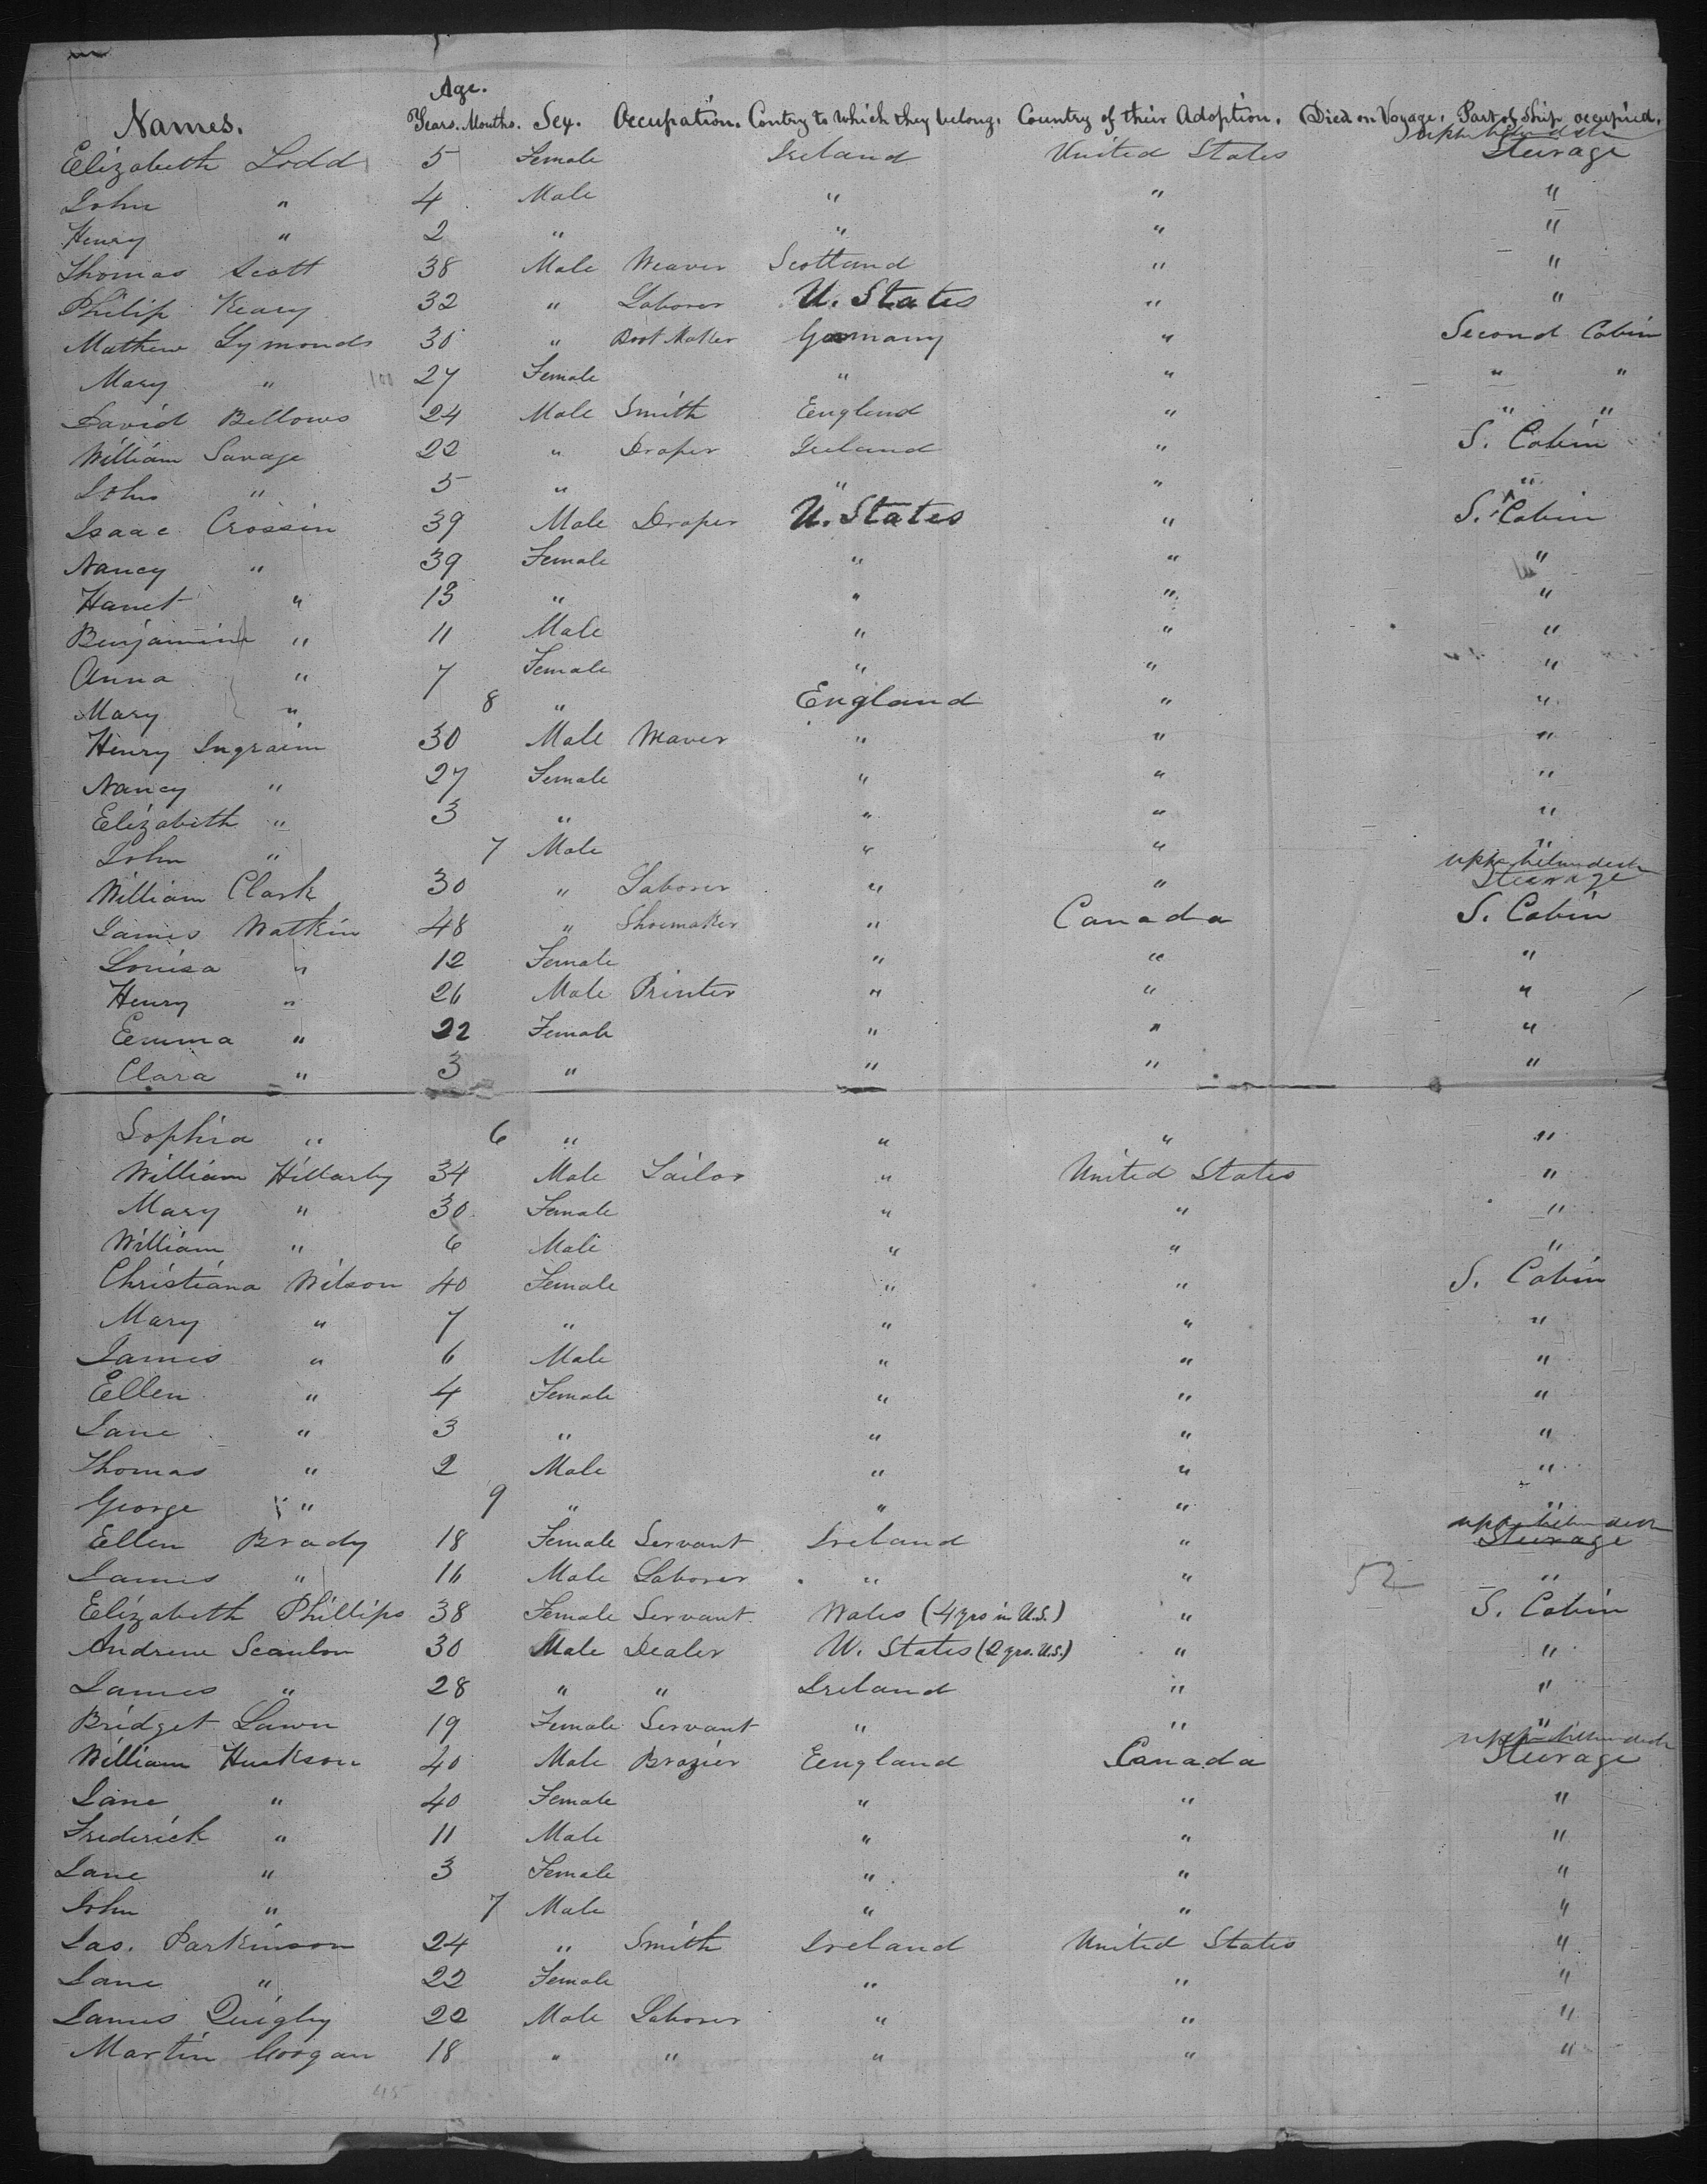 Age.
Names. Years. Months. Sex. Occupation. Contry to which they belong. Country of their Adoption. Died on Voyage. Part of Ship occupied.
Elizabeth Lodd 5 Female Ireland United States Steerage
John " 4 Male " " "
Henry " 2 " " " "
Thomas Scott 38 Male Weaver Scotland " "
Philip Keary 32 " Laborer U. States " "
Mathew Symonds 30 " Boot Maker Germany " Second Cabin
Mary " 100 27 Female " " " "
David Bellows 24 Male Smith England " " "
William Savage 22 " Draper Ireland " S. Cabin
John " 5 " " " "
Isaac Crossin 39 Male Draper U. States " S. Cabin
Nancy " 39 Female " " "
Hanet " 13 " " " "
Benjamine " 11 Male " " "
Anna " 7 Female " " "
Mary " 8 " England " "
Henry Ingraim 30 Male Weaver " " "
Nancy " 27 Female " " "
Elizabeth " 3 " " " "
John " 7 Male " " "
William Clark 30 " Laborer " " Steerage
James Watkin 48 " Shoemaker " Canada S. Cabin
Louisa " 12 Female " " "
Henry " 26 Male Printer " " "
Emma " 22 Female " " "
Clara " 3 " " " "
Sophia " 6 " " " "
William Hillarby 34 Male Tailor " United States "
Mary " 30 Female " " "
William " 6 Male " " "
Christiana Wilson 40 Female " " S. Cabin
Mary " 7 " " " "
James " 6 Male " " "
Ellen " 4 Female " " "
Jane " 3 " " " "
Thomas " 2 Male " " "
George " 9 " " " "
Ellen Brady 18 Female Servant Ireland " Steerage
James " 16 Male Laborer " " "
52
Elizabeth Phillips 38 Female Servant Wales (4 yrs in U.S.) " S. Cabin
Andrew Scanlon 30 Male Dealer U. States (2 yrs. U.S.) " "
James " 28 " " Ireland " "
Bridget Lawn 19 Female Servant " " "
William Huskson 40 Male Brazier England Canada Steerage
Jane " 40 Female " " "
Frederick " 11 Male " " "
Jane " 3 Female " " "
John " 7 Male " " "
Jas. Parkinson 24 " Smith Ireland United States "
Jane " 22 Female " " "
James Quigley 22 Male Laborer " " "
Martin Coogan 18 " " " " "